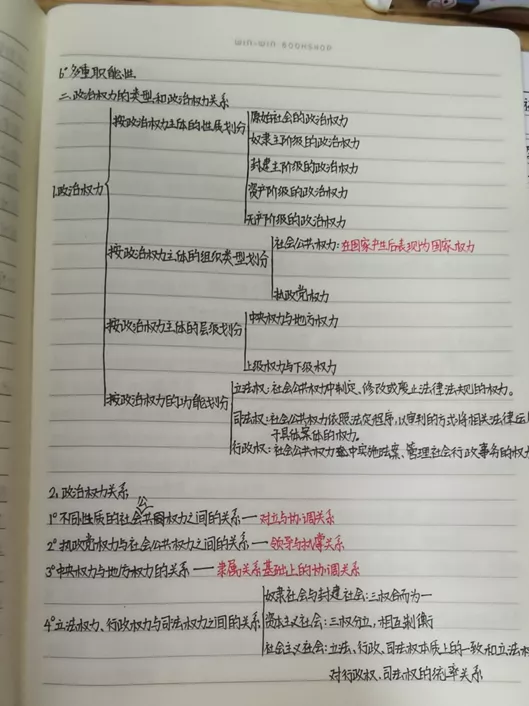 WIN-WIN BOOKSHOP
6°多重职能性
二、政治权力的类型和政治权力关系
1.政治权力
按政治权力主体的性质划分
原始社会的政治权力
奴隶主阶级的政治权力
封建主阶级的政治权力
资产阶级的政治权力
无产阶级的政治权力
按政治权力主体的组织类型划分
社会公共权力：在国家产生后表现为国家权力
执政党权力
按政治权力主体的层级划分
中央权力与地方权力
上级权力与下级权力
按政治权力的功能划分
立法权：社会公共权力中制定、修改或废止法律法规的权力。
司法权：社会公共权力依照法定程序，以审判的方式将相关法律运
于具体案体的权力。
行政权：社会公共权力中实施法案、管理社会行政事务的权力
2、政治权力关系
1°不同性质的社会公共权力之间的关系—对立与协调关系
2°执政党权力与社会公共权力之间的关系—领导与执掌关系
3°中央权力与地方权力的关系—隶属关系基础上的协调关系
4°立法权力、行政权力与司法权力之间的关系
奴隶社会与封建社会：三权合而为一
资本主义社会：三权分立，相互制衡
社会主义社会：立法、行政、司法权本质上的一致和立法权
对行政权、司法权的统率关系